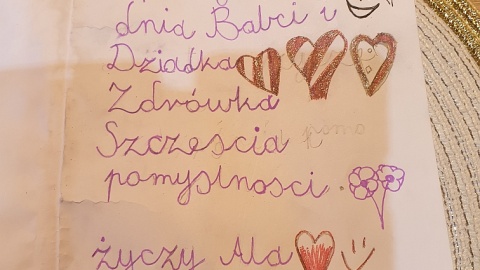 dnia Babci i
Dziadka
Zdrówka
Szczęścia
pomyslnosci.
życzy Ala